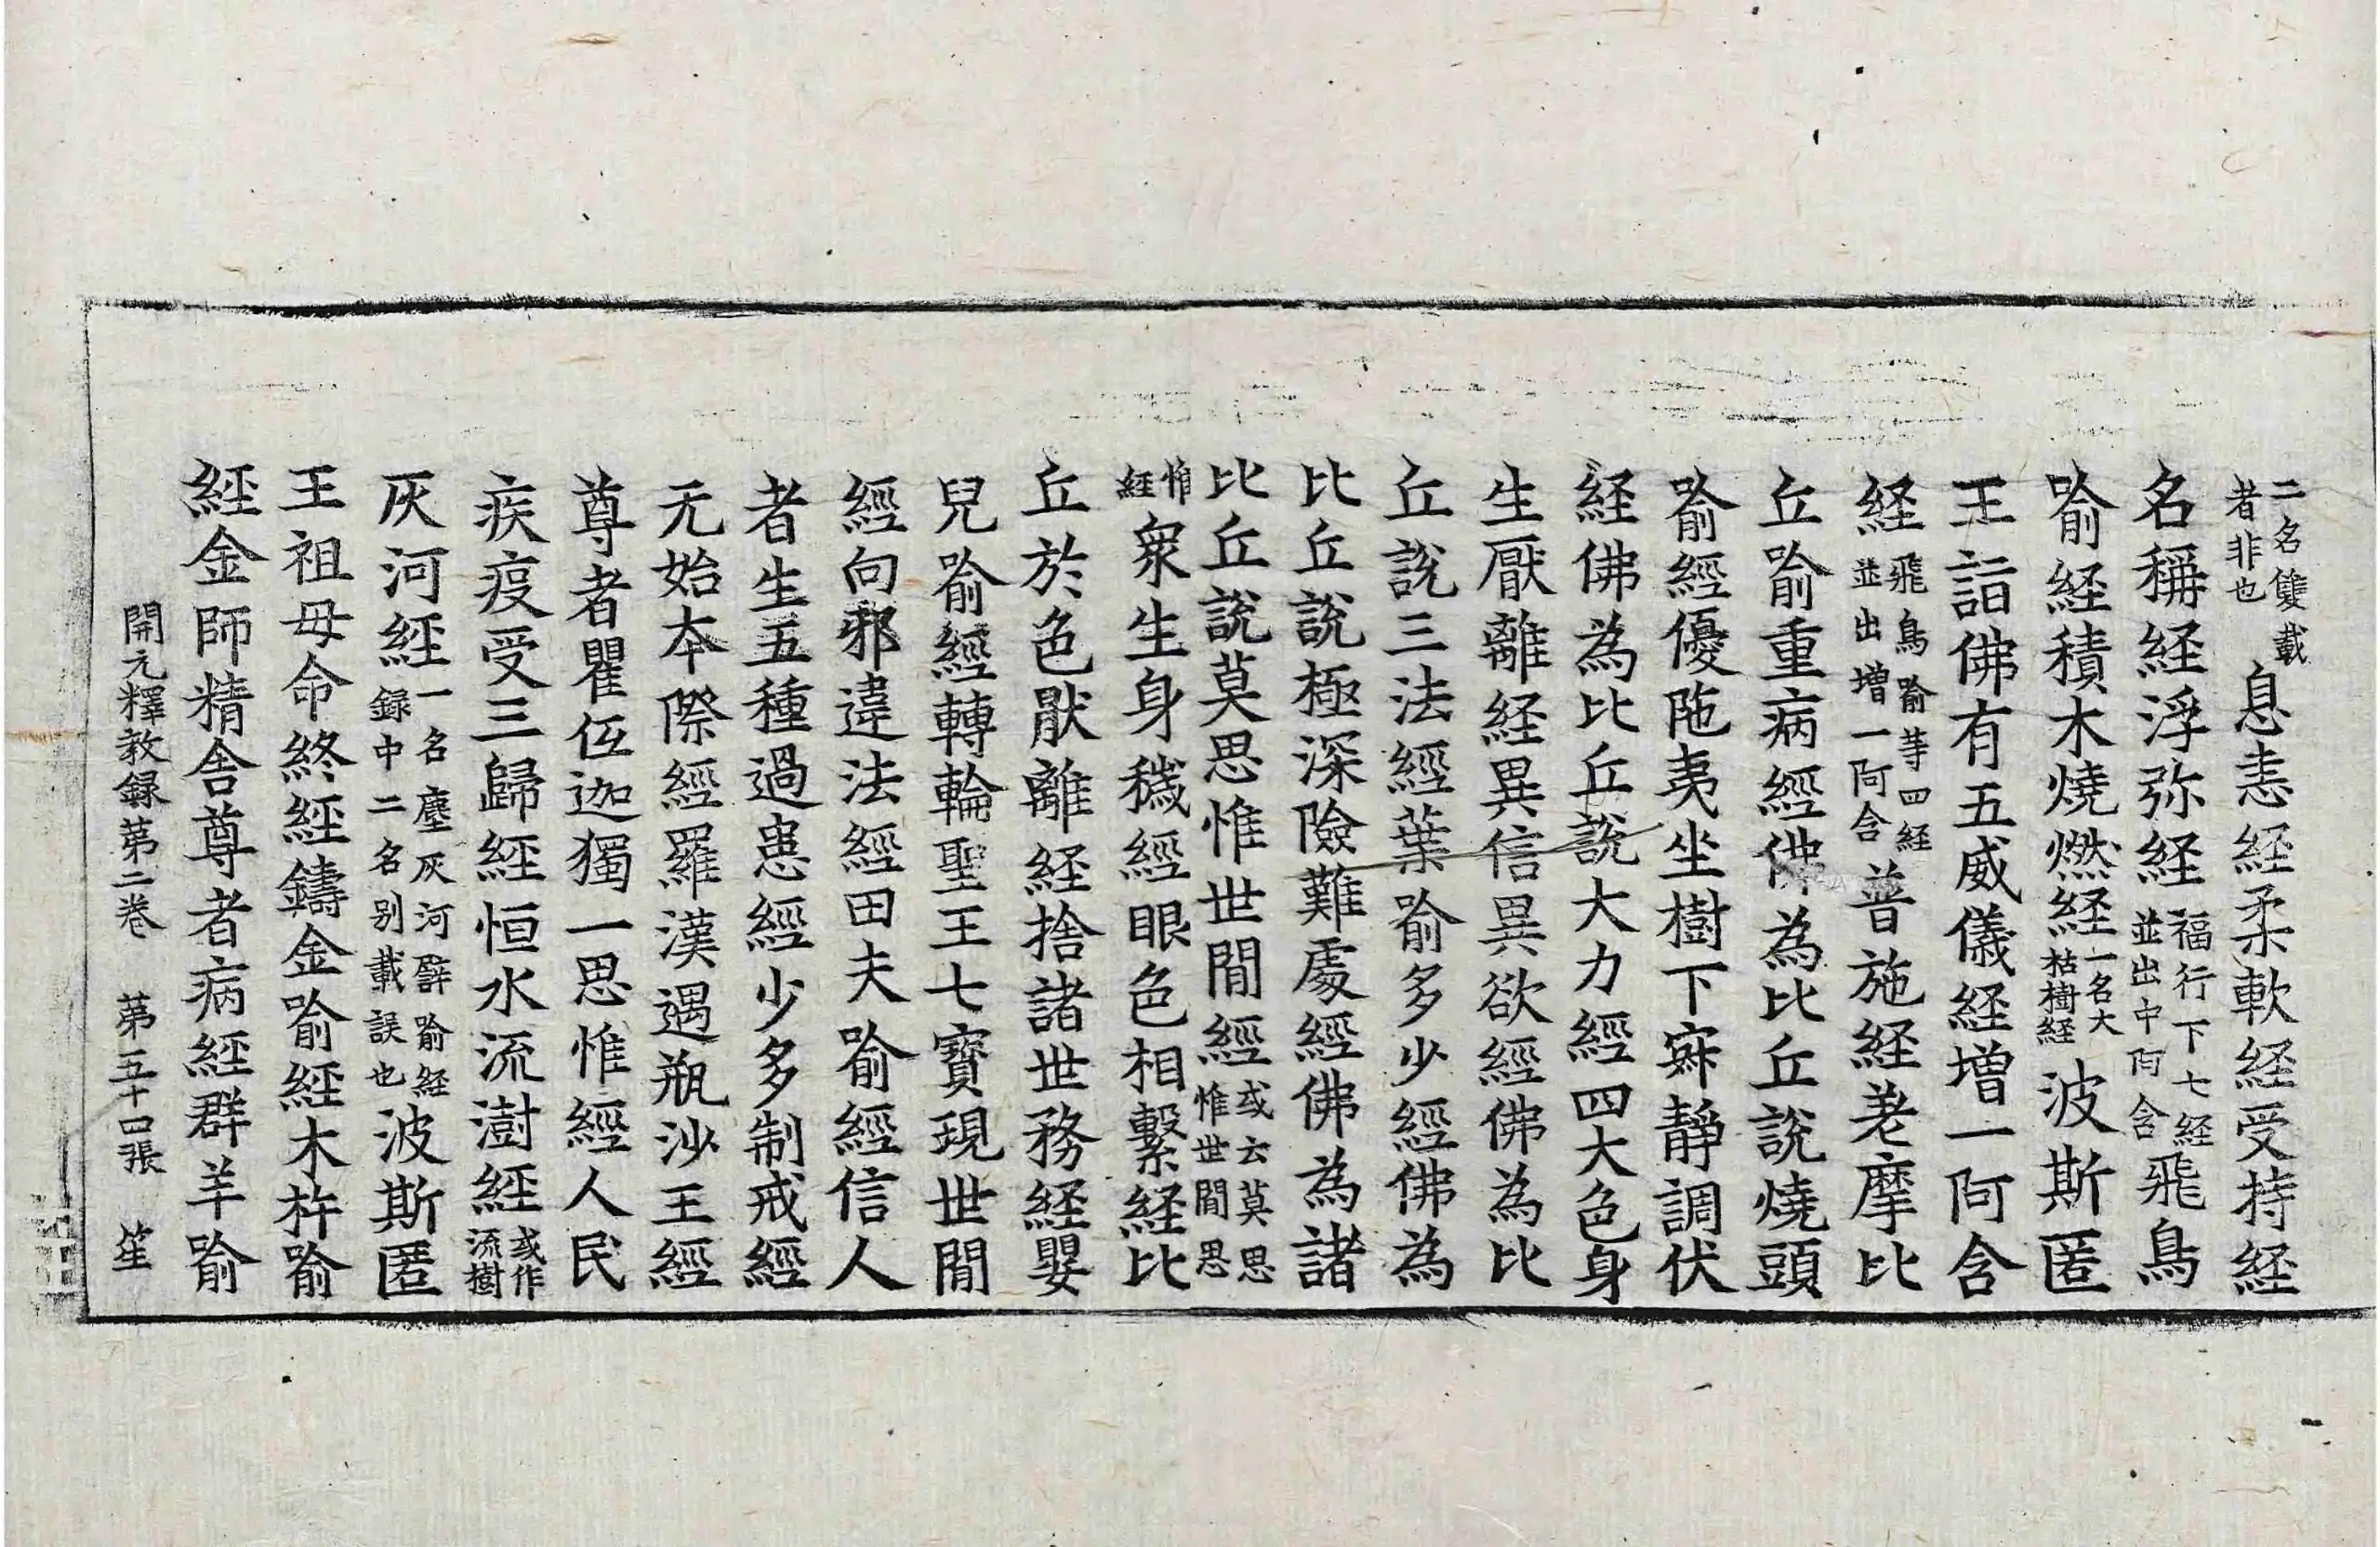 二名雙載者非也息恚經柔軟経受持経
名稱経浮弥経福行下七経並出中阿含飛鳥
喻経積木燒燃経一名大枯樹経波斯匿
王詣佛有五威儀経增一阿含
経飛鳥喻䓁四経並出增一阿含普施経老摩比
丘喻重病經佛為比丘說燒頭
喻經優陁夷坐樹下寂靜調伏
経佛為比丘說大力經四大色身
生厭離経異信異欲經佛為比
丘說三法經葉喻多少經佛為
比丘說極深險難處經佛為諸
比丘說莫思惟世閒經或云莫思惟世閒思
惟經衆生身穢經眼色相繫経比
丘於色猒離経捨諸世務経嬰
兒喻經轉輪聖王七寶現世閒
經向邪違法經田夫喻經信人
者生五種過患經少多制戒經
无始本際經羅漢遇瓶沙王經
尊者瞿低迦獨一思惟經人民
疾疫受三歸経恒水流澍経或作流樹
灰河経一名塵灰河譬喻経録中二名別載誤也波斯匿
王祖母命終經鑄金喻經木杵喻
経金師精舍尊者病経群羊喻
開元釋教録苐二卷 苐五十口張 笙